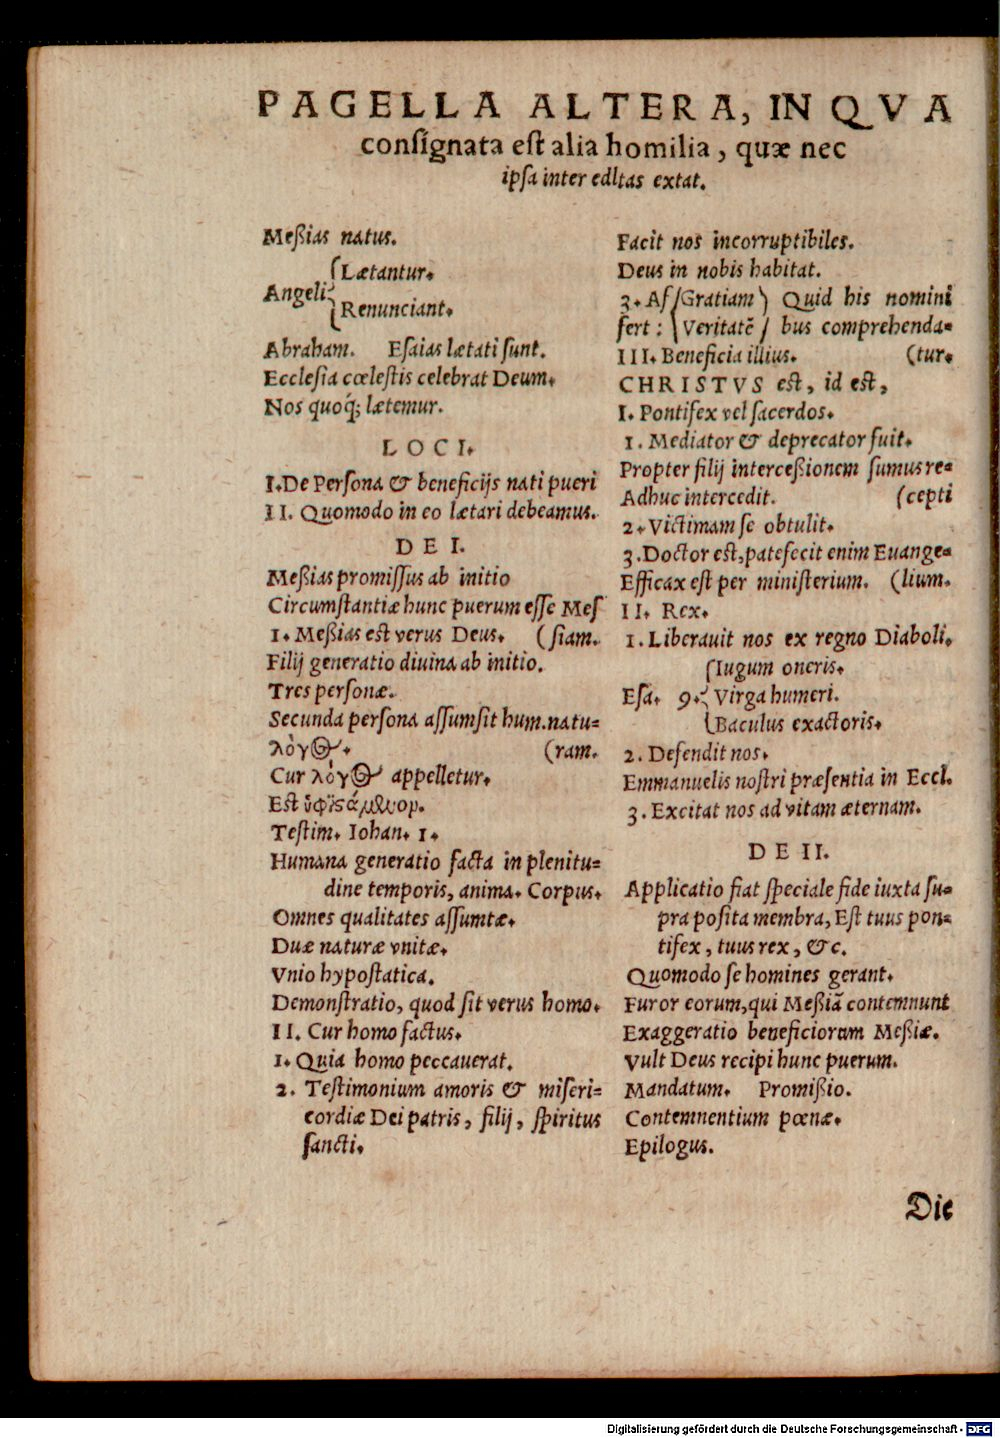 PAGELLA ALTERA, IN QVA
conſignata eſt alia homilia, quæ nec
ipſa inter editas extat.
Meßias natus.
Lætantur.
Angeli
Renunciant.
Abraham. Eſaias lætati ſunt.
Ecclesia cœleſtis celebrat Deum.
Nos quoq́; lætemur.
LOCI.
I. De Perſona & beneficijs nati pueri
II. Quomodo in eo lætari debeamus.
DE I.
Meßias promiſſus ab initio
Circumſtantiæ hunc puerum eſſe Meſ
1. Meßias est verus Deus. (ſiam.
Filij generatio diuina ab initio.
Tres perſonæ.
Secunda perſona aſſumſit hum. natu-
λόγος. (ram.
Cur λόγος appelletur.
Est ὑφιστάμενον.
Testim. Iohan. 1.
Humana generatio facta in plenitu-
dine temporis, anima. Corpus.
Omnes qualitates aſſumtæ.
Duæ naturæ vnitæ.
Vnio hypoſtatica.
Demonſtratio, quod ſit verus homo.
II. Cur homo factus.
1. Quia homo peccauerat.
2. Teſtimonium amoris & miſeri-
cordiæ Dei patris, filij, ſpiritus
ſancti.
Facit nos incorruptibiles.
Deus in nobis habitat.
3. Aſ Gratiam Quid his nomini
fert: Veritatẽ bus comprehenda-
III. Beneficia illius. (tur.
CHRISTVS est, id est,
I. Pontifex vel ſacerdos.
1. Mediator & deprecator fuit.
Propter filij interceßionem ſumus re-
Adhuc intercedit. (cepti
2. Victimam ſe obtulit.
3. Doctor est, patefecit enim Euange-
Efficax est per ministerium. (lium.
II. Rex.
1. Liberauit nos ex regno Diaboli.
Iugum oneris.
Eſa. 9. Virga humeri.
Baculus exactoris.
2. Defendit nos.
Emmanuelis noſtri præſentia in Eccl.
3. Excitat nos ad vitam æternam.
DE II.
Applicatio fiat ſpeciale fide iuxta ſu-
pra poſita membra, Est tuus pon-
tifex, tuus rex, &c.
Quomodo ſe homines gerant.
Furor eorum, qui Meßiã contemnunt
Exaggeratio beneficiorum Meßiæ.
Vult Deus recipi hunc puerum.
Mandatum. Promißio.
Contemnentium pœnæ.
Epilogus.
Die
Digitalisierung gefördert durch die Deutsche Forschungsgemeinschaft - DFG